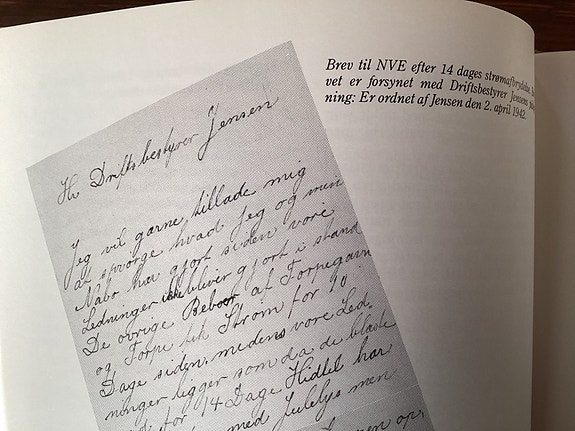 Brev til NVE efter 14 dages strømafbrydelse.
vet er forsynet med Driftsbestyrer Jensens
ning: Er ordnet af Jensen den 2. april 1942.
Hr Driftsbestyrer Jensen
Jeg vil garne tillade mig
at spørge hvad Jeg og min
Nabo har gjort siden vore
Ledninger ikke bliver gjort i stand
De øvrige Beboer af Torpegaarn
og Torpe fik Strøm for 10
Dage siden, medens vore Led
ninger ligger som da de blæste
for 14 Dage Hidtil har
med Julelys men
op.